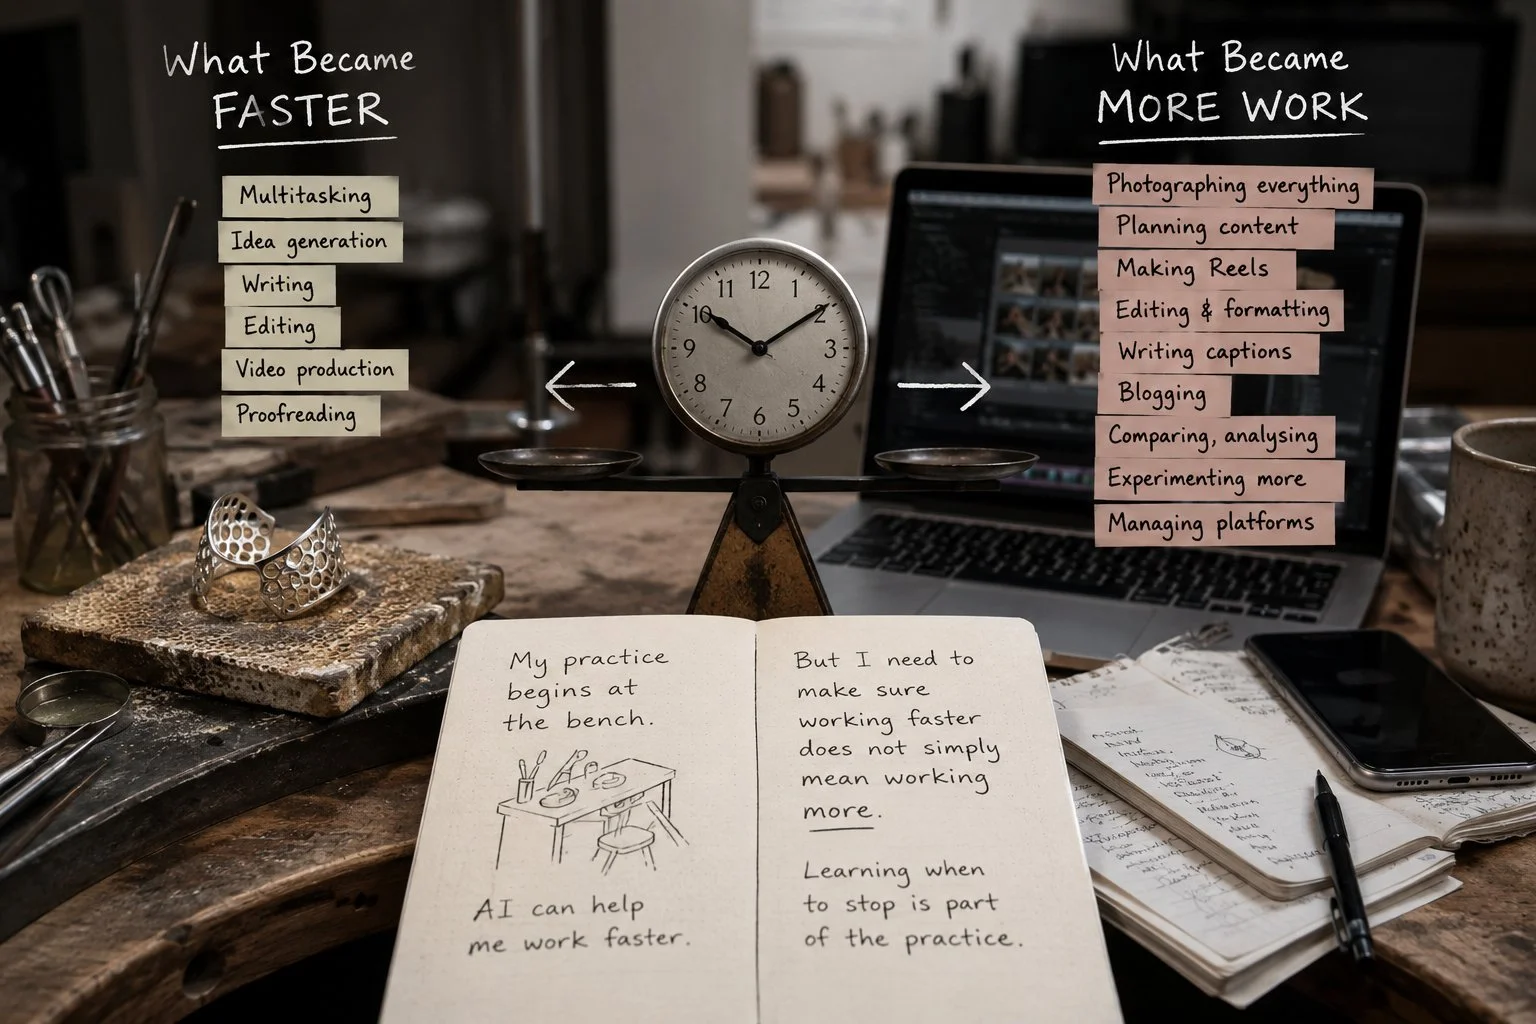 What Became
FASTER
Multitasking
Idea generation
Writing
Editing
Video production
Proofreading
What Became
MORE WORK
Photographing everything
Planning content
Making Reels
Editing & formatting
Writing captions
Blogging
Comparing, analysing
Experimenting more
Managing platforms
12
1
2
3
4
5
6
7
8
9
10
11
My practice
begins at
the bench.
AI can help
me work faster.
But I need to
make sure
working faster
does not simply
mean working
more.
Learning when
to stop is part
of the practice.